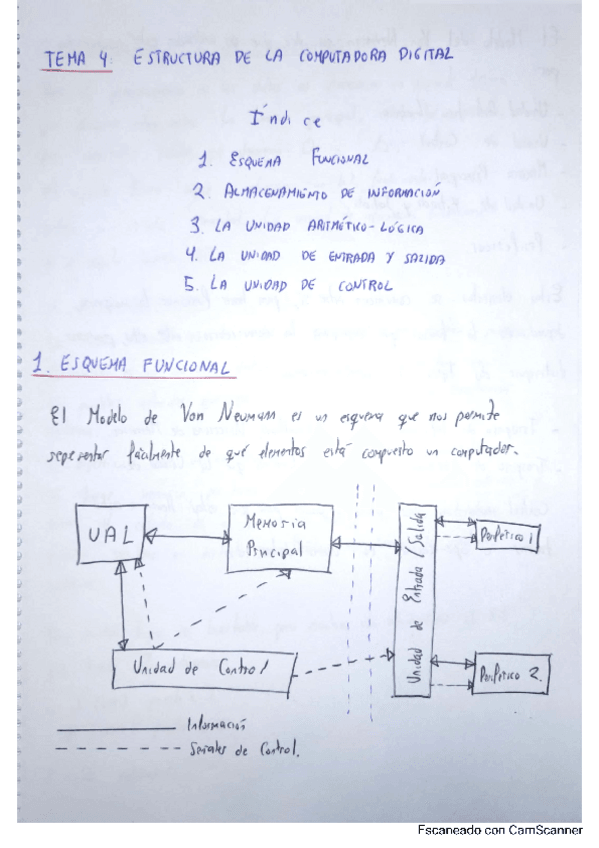 TEMA 4: ESTRUCTURA DE LA COMPUTADORA DIGITAL
Índice
1. ESQUEMA FUNCIONAL
2. ALMACENAMIENTO DE INFORMACIÓN
3. LA UNIDAD ARITMÉTICO-LÓGICA
4. LA UNIDAD DE ENTRADA Y SALIDA
5. LA UNIDAD DE CONTROL
1. ESQUEMA FUNCIONAL
El Modelo de Von Neumann es un esquema que nos permite
representar fácilmente de qué elementos está compuesto un computador.
UAL
Memoria
Principal
Unidad de Entrada/Salida
Periférico 1
Unidad de Control
Periférico 2.
Información
Señales de Control.
Escaneado con CamScanner